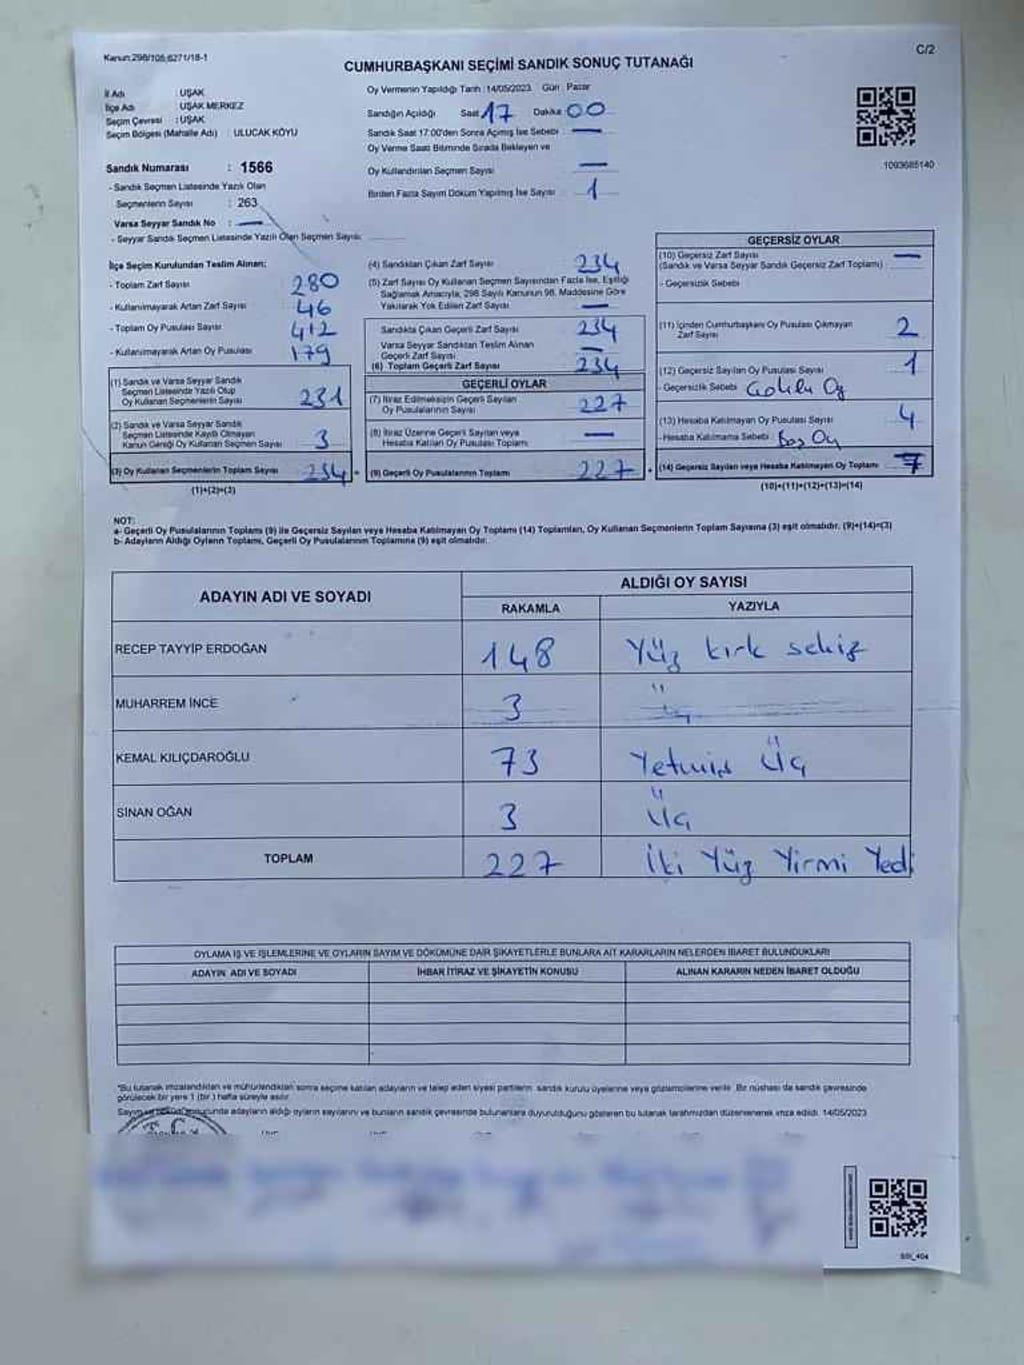 Kanun:298/105;6271/18-1
C/2
CUMHURBAŞKANI SEÇİMİ SANDIK SONUÇ TUTANAĞI
İl Adı : UŞAK
İlçe Adı : UŞAK MERKEZ
Seçim Çevresi : UŞAK
Seçim Bölgesi (Mahalle Adı) : ULUCAK KÖYÜ
Sandık Numarası : 1566
- Sandık Seçmen Listesinde Yazılı Olan
Seçmenlerin Sayısı : 263
Varsa Seyyar Sandık No : —
- Seyyar Sandık Seçmen Listesinde Yazılı Olan Seçmen Sayısı:
Oy Vermenin Yapıldığı Tarih :14/05/2023 Gün : Pazar
Sandığın Açıldığı Saat 17 Dakika 00
Sandık Saat 17:00'den Sonra Açılmış İse Sebebi : —
Oy Verme Saati Bitiminde Sırada Bekleyen ve
Oy Kullandırılan Seçmen Sayısı —
Birden Fazla Sayım Döküm Yapılmış İse Sayısı : 1
1093685140
İlçe Seçim Kurulundan Teslim Alınan:
- Toplam Zarf Sayısı : 280
- Kullanılmayarak Artan Zarf Sayısı : 46
- Toplam Oy Pusulası Sayısı : 412
- Kullanılmayarak Artan Oy Pusulası : 179
(1) Sandık ve Varsa Seyyar Sandık
Seçmen Listesinde Yazılı Olup
Oy Kullanan Seçmenlerin Sayısı : 231
(2) Sandık ve Varsa Seyyar Sandık
Seçmen Listesinde Kayıtlı Olmayan
Kanun Gereği Oy Kullanan Seçmen Sayısı : 3
(3) Oy Kullanan Seçmenlerin Toplam Sayısı : 234 =
(1)+(2)=(3)
(4) Sandıktan Çıkan Zarf Sayısı : 234
(5) Zarf Sayısı Oy Kullanan Seçmen Sayısından Fazla İse, Eşitliği
Sağlamak Amacıyla, 298 Sayılı Kanunun 98. Maddesine Göre
Yakılarak Yok Edilen Zarf Sayısı : —
Sandıkta Çıkan Geçerli Zarf Sayısı : 234
Varsa Seyyar Sandıktan Teslim Alınan
Geçerli Zarf Sayısı : —
(6) Toplam Geçerli Zarf Sayısı : 234
GEÇERLİ OYLAR
(7) İtiraz Edilmeksizin Geçerli Sayılan
Oy Pusulalarının Sayısı : 227
(8) İtiraz Üzerine Geçerli Sayılan veya
Hesaba Katılan Oy Pusulası Toplamı : —
(9) Geçerli Oy Pusulalarının Toplamı : 227 +
GEÇERSİZ OYLAR
(10) Geçersiz Zarf Sayısı : —
(Sandık ve Varsa Seyyar Sandık Geçersiz Zarf Toplamı)
- Geçersizlik Sebebi :
(11) İçinden Cumhurbaşkanı Oy Pusulası Çıkmayan
Zarf Sayısı : 2
(12) Geçersiz Sayılan Oy Pusulası Sayısı : 1
-Geçersizlik Sebebi : Oy
(13) Hesaba Katılmayan Oy Pusulası Sayısı : 4
-Hesaba Katılmama Sebebi : Boş Oy
(14) Geçersiz Sayılan veya Hesaba Katılmayan Oy Toplamı : 7
(10)+(11)+(12)+(13)=(14)
NOT:
a- Geçerli Oy Pusulalarının Toplamı (9) ile Geçersiz Sayılan veya Hesaba Katılmayan Oy Toplamı (14) Toplamları, Oy Kullanan Seçmenlerin Toplam Sayısına (3) eşit olmalıdır. (9)+(14)=(3)
b- Adayların Aldığı Oyların Toplamı, Geçerli Oy Pusulalarının Toplamına (9) eşit olmalıdır.
ADAYIN ADI VE SOYADI
ALDIĞI OY SAYISI
RAKAMLA YAZIYLA
RECEP TAYYİP ERDOĞAN 148 Yüz kırk sekiz
MUHARREM İNCE 3 Üç
KEMAL KILIÇDAROĞLU 73 Yetmiş Üç
SİNAN OĞAN 3 Üç
TOPLAM 227 İki Yüz Yirmi Yedi
OYLAMA İŞ VE İŞLEMLERİNE VE OYLARIN SAYIM VE DÖKÜMÜNE DAİR ŞİKAYETLERLE BUNLARA AİT KARARLARIN NELERDEN İBARET BULUNDUKLARI
ADAYIN ADI VE SOYADI İHBAR İTİRAZ VE ŞİKAYETİN KONUSU ALINAN KARARIN NEDEN İBARET OLDUĞU
*Bu tutanak imzalandıktan ve mühürlendikten sonra seçime katılan adayların ve talep eden siyasi partilerin sandık kurulu üyelerine veya gözlemcilerine verilir. Bir nüshası da sandık çevresinde
görülecek bir yere 1 (bir) hafta süreyle asılır.
Sayım ve döküm sonucunda adayların aldığı oyların sayılarını ve bunların sandık çevresinde bulunanlara duyurulduğunu gösteren bu tutanak tarafımızdan düzenlenerek imza edildi. 14/05/2023
SSI_404